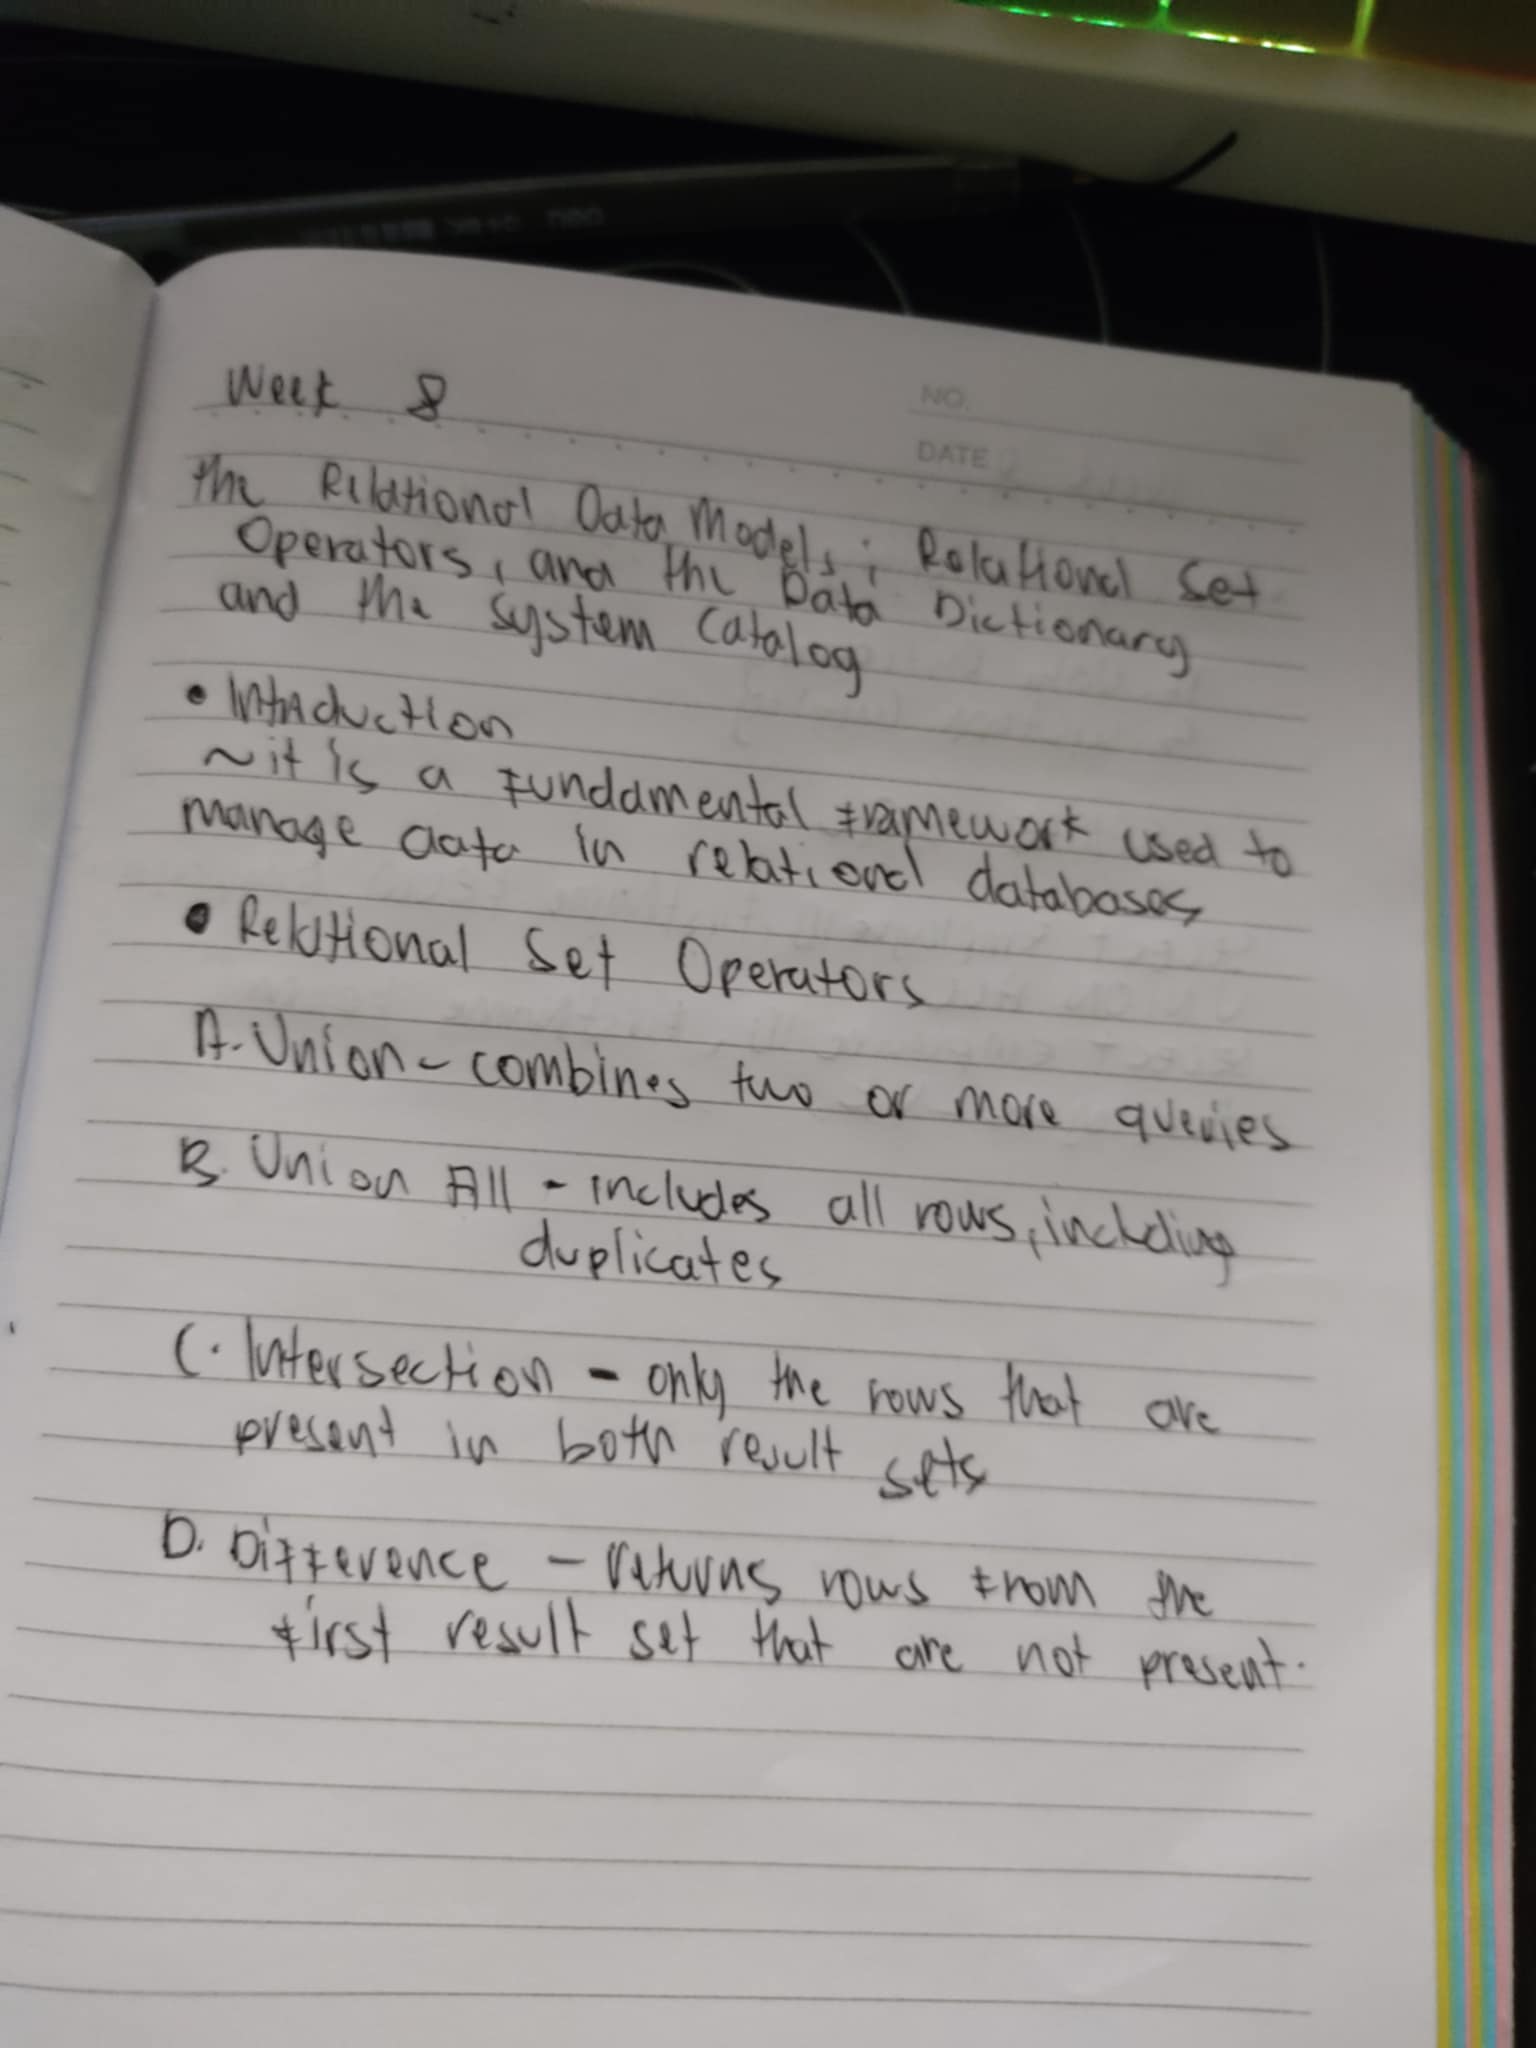 Week 8
NO.
DATE
The Relational Data Models; Relational Set
Operators, and the Data Dictionary
and the System Catalog
• Introduction
~it is a fundamental framework used to
manage data in relational databases
• Relational Set Operators
A. Union - combines two or more queries
B. Union All - includes all rows, including
duplicates
C. Intersection - only the rows that are
present in both result sets
D. Difference - returns rows from the
first result set that are not present.